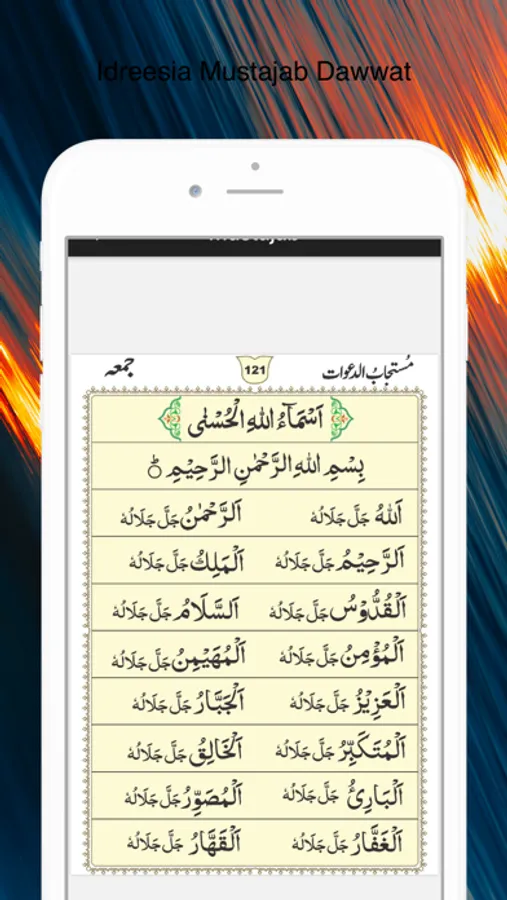 Idreesia Mustajab Dawwat
مُستجابُ الدعوات 121 جمعہ
اَسْمَآءُ اللهِ الْحُسْنٰى
بِسْمِ اللهِ الرَّحْمٰنِ الرَّحِيْمِ
اَللهُ جَلَّ جَلَالُهٗ اَلرَّحْمٰنُ جَلَّ جَلَالُهٗ
اَلرَّحِيْمُ جَلَّ جَلَالُهٗ اَلْمَلِكُ جَلَّ جَلَالُهٗ
اَلْقُدُّوْسُ جَلَّ جَلَالُهٗ اَلسَّلَامُ جَلَّ جَلَالُهٗ
اَلْمُؤْمِنُ جَلَّ جَلَالُهٗ اَلْمُهَيْمِنُ جَلَّ جَلَالُهٗ
اَلْعَزِيْزُ جَلَّ جَلَالُهٗ اَلْجَبَّارُ جَلَّ جَلَالُهٗ
اَلْمُتَكَبِّرُ جَلَّ جَلَالُهٗ اَلْخَالِقُ جَلَّ جَلَالُهٗ
اَلْبَارِئُ جَلَّ جَلَالُهٗ اَلْمُصَوِّرُ جَلَّ جَلَالُهٗ
اَلْغَفَّارُ جَلَّ جَلَالُهٗ اَلْقَهَّارُ جَلَّ جَلَالُهٗ